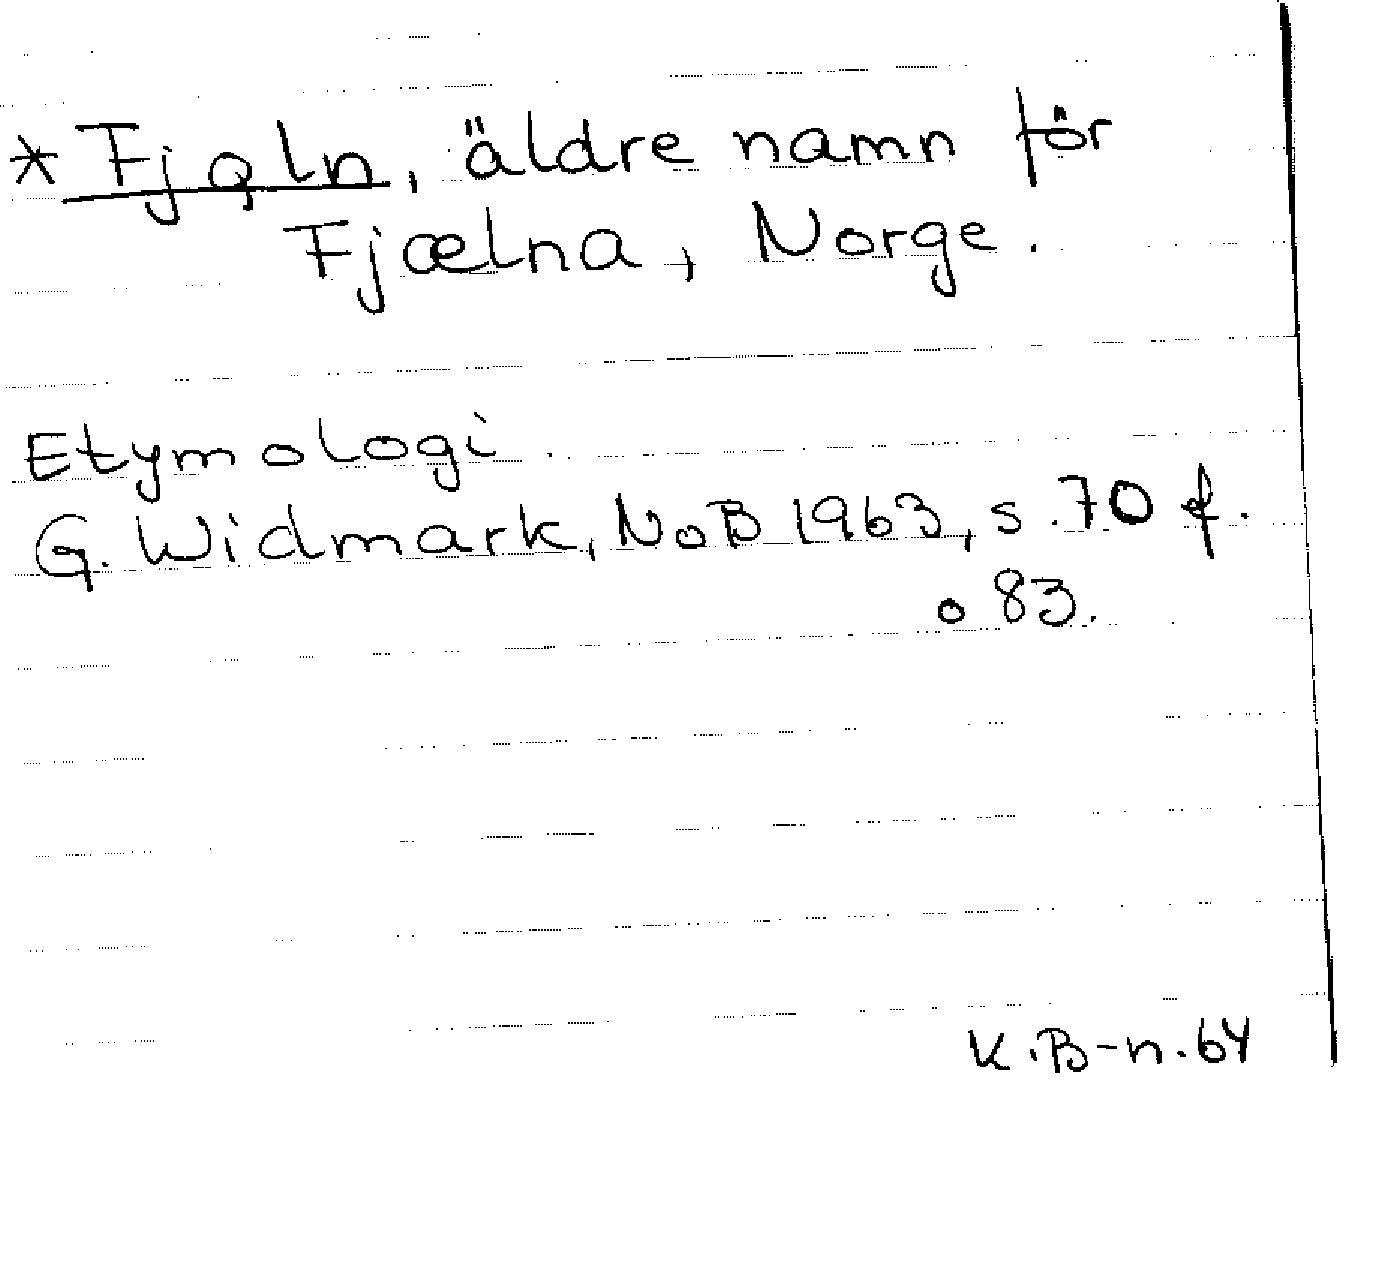 * Fjǫln, äldre namn för
Fjælna, Norge.
Etymologi
G. Widmark, NoB 1963, s. 70 f.
o 83.
K.B-n. 64